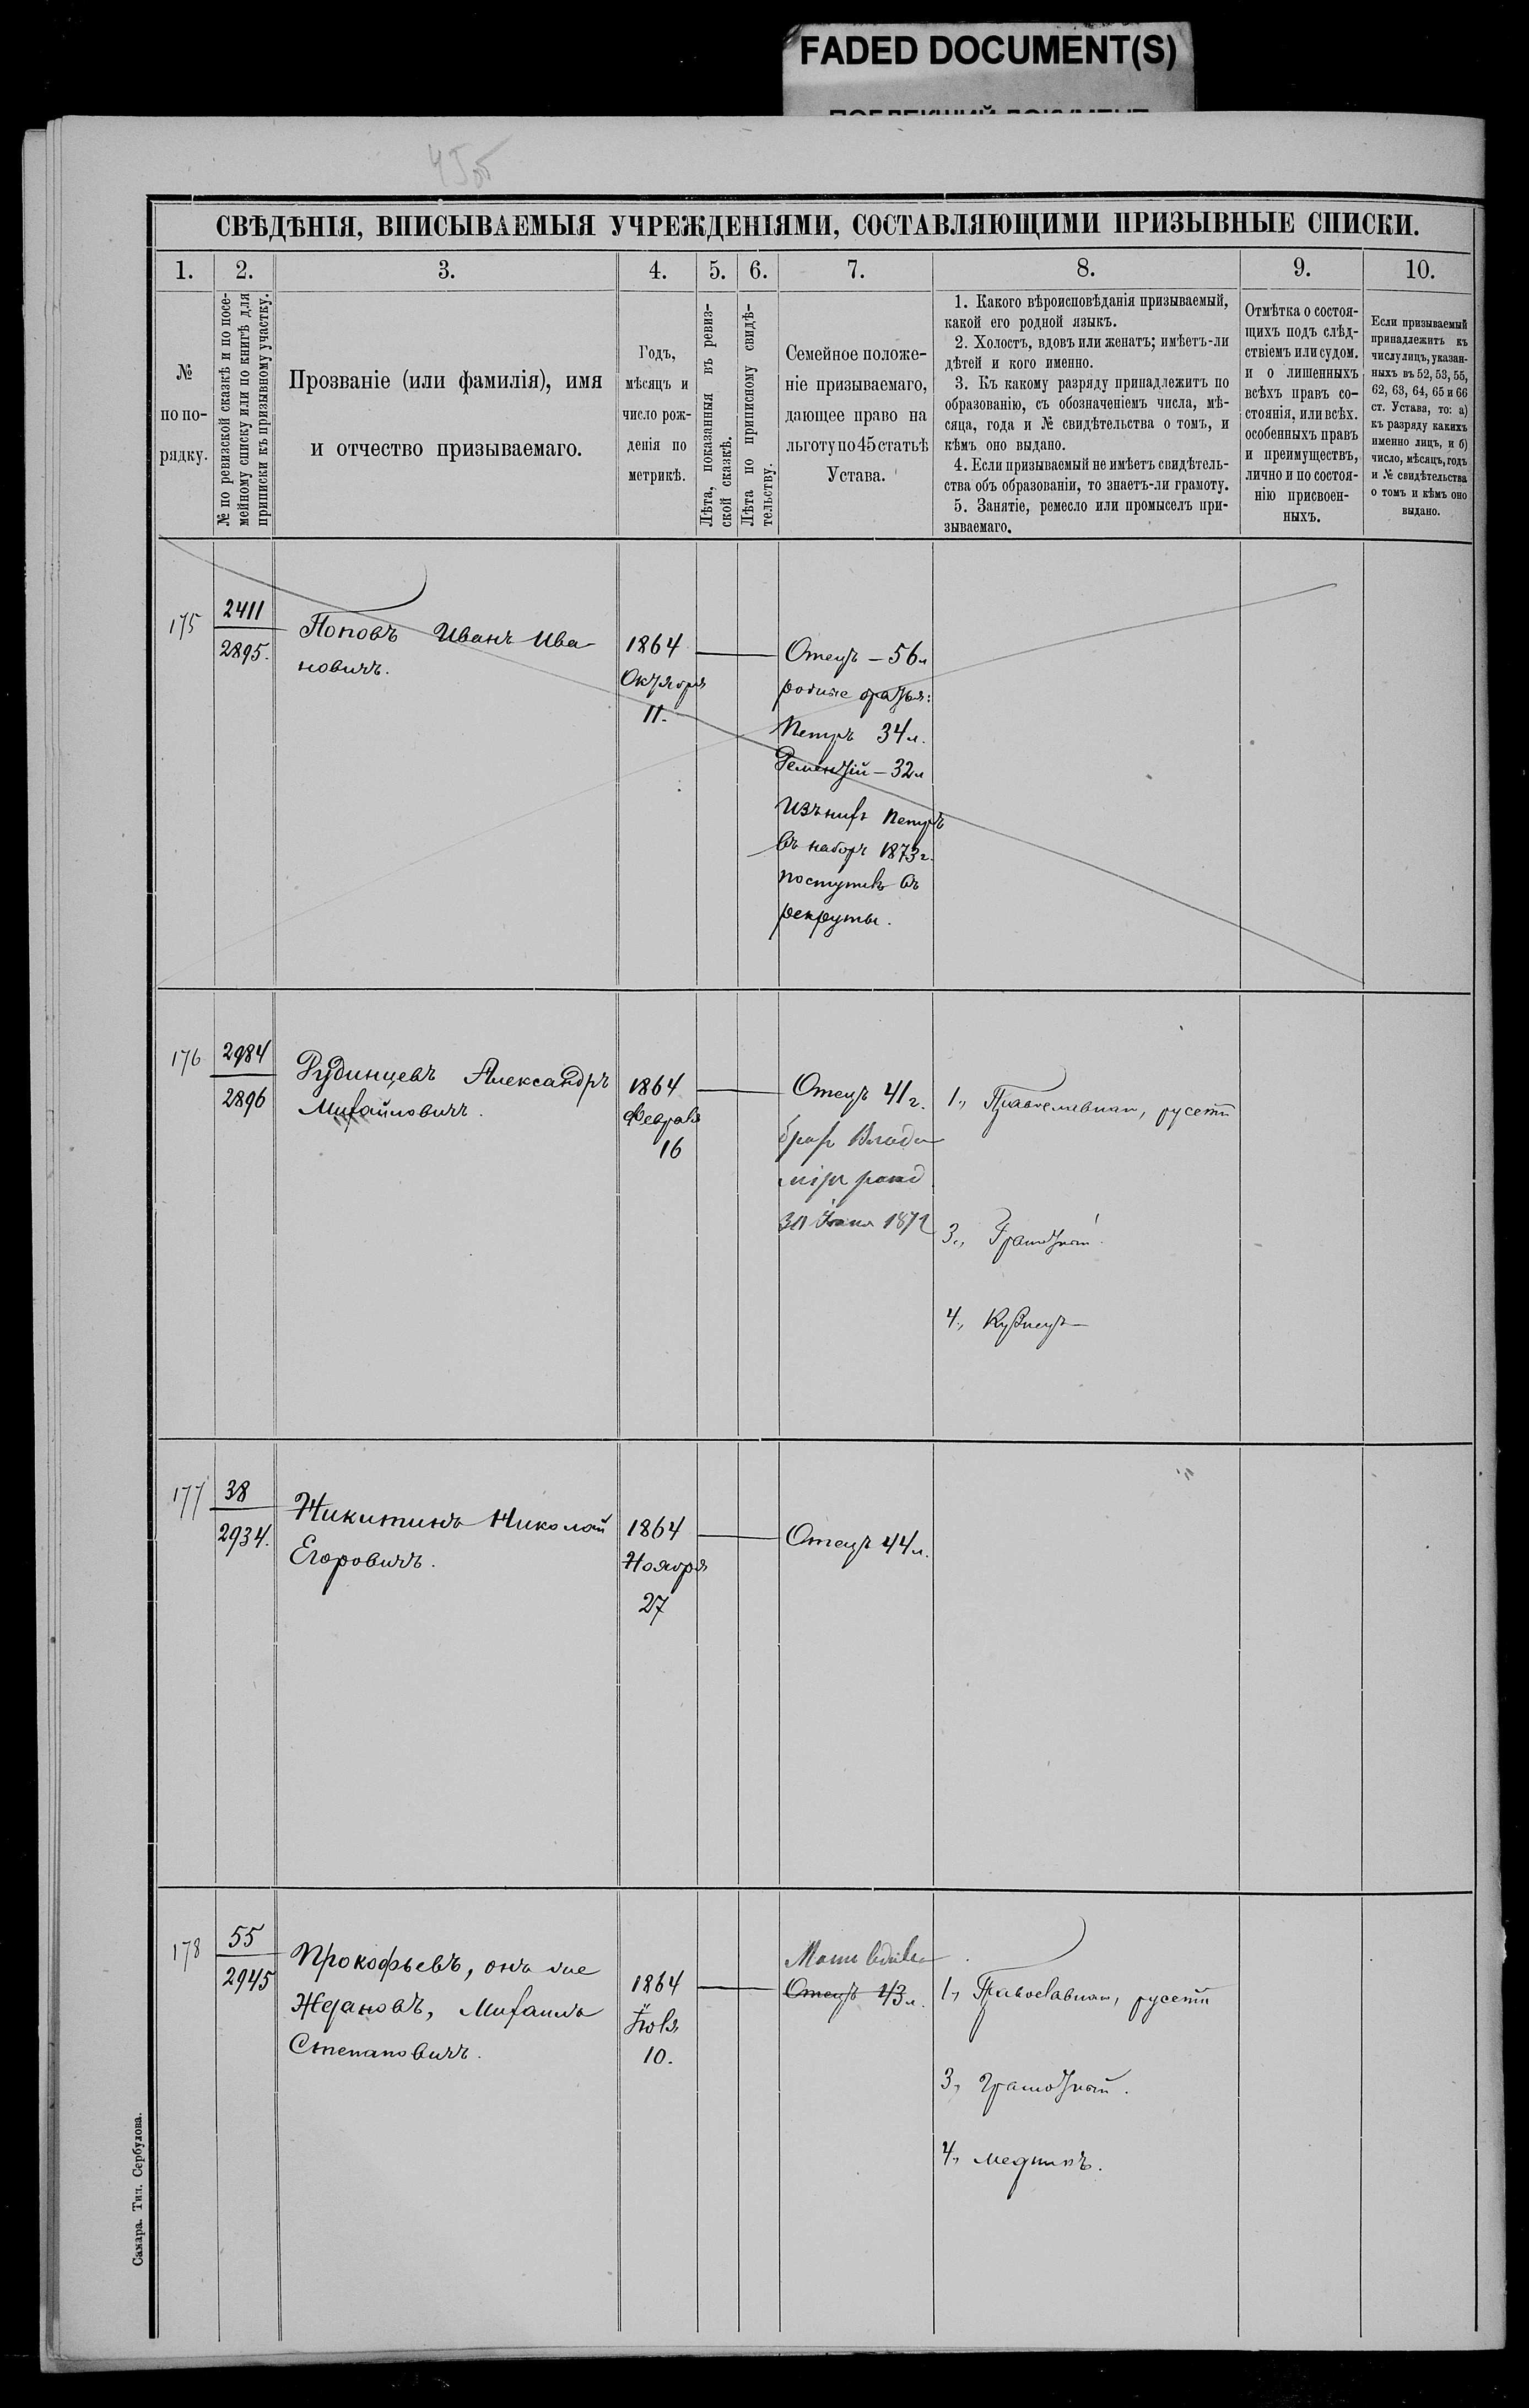 FADED DOCUMENT(S)
45об
СВѢДѢНІЯ, ВПИСЫВАЕМЫЯ УЧРЕЖДЕНІЯМИ, СОСТАВЛЯЮЩИМИ ПРИЗЫВНЫЕ СПИСКИ.
1.
2.
3.
4.
5.
6.
7.
8.
9.
10.
№
по по-
рядку.
№ по ревизской сказкѣ и по посе-
мейному списку или по книгѣ для
приписки къ призывному участку.
Прозваніе (или фамилія), имя
и отчество призываемаго.
Годъ,
мѣсяцъ и
число рож-
денія по
метрикѣ.
Лѣта, показанныя въ ревиз-
ской сказкѣ.
Лѣта по приписному свидѣ-
тельству.
Семейное положе-
ніе призываемаго,
дающее право на
льготу по 45 статьѣ
Устава.
1. Какого вѣроисповѣданія призываемый,
какой его родной языкъ.
2. Холостъ, вдовъ или женатъ; имѣетъ-ли
дѣтей и кого именно.
3. Къ какому разряду принадлежитъ по
образованію, съ обозначеніемъ числа, мѣ-
сяца, года и № свидѣтельства о томъ, и
кѣмъ оно выдано.
4. Если призываемый не имѣетъ свидѣтель-
ства объ образованіи, то знаетъ-ли грамоту.
5. Занятіе, ремесло или промыселъ при-
зываемаго.
Отмѣтка о состоя-
щихъ подъ слѣд-
ствіемъ или судом.
и о лишенныхъ
всѣхъ правъ со-
стоянія, или всѣх.
особенныхъ правъ
и преимуществъ,
лично и по состоя-
нію присвоен-
ныхъ.
Если призываемый
принадлежитъ къ
числу лицъ, указан-
ныхъ въ 52, 53, 55,
62, 63, 64, 65 и 66
ст. Устава, то: а)
къ разряду какихъ
именно лицъ, и б)
число, мѣсяцъ, годъ
и № свидѣтельства
о томъ и кѣмъ оно
выдано.
175
2411
2895.
Поповъ Иванъ Ива
новичъ.
1864
Октября
11.
Отецъ – 56 л
родные братья:
Петръ 34 л.
– 32 л
Изъ нихъ Петръ
въ наборъ 1873 г.
поступилъ въ
рекруты.
176
2984
2896
Рудинцевъ Александръ
Михайловичъ.
1864
Февраля
16
Отецъ 41 г.
братъ Влади
міръ рожд
30 1872
1., Православный, русскій
3., Грамотный.
4., Кузнецъ
177
38
2934.
Никитинъ Николай
Егоровичъ.
1864
Ноября
27
Отецъ 44 л.
178
55
2945
Прокофьевъ, онъ же
Ждановъ, Михаилъ
Степановичъ.
1864
Іюля
10.
Мать вдова
Отецъ 43 л.
1., Православный, русскій
3, Грамотный.
4., медникъ.
Самара. Тип. Сербулова.